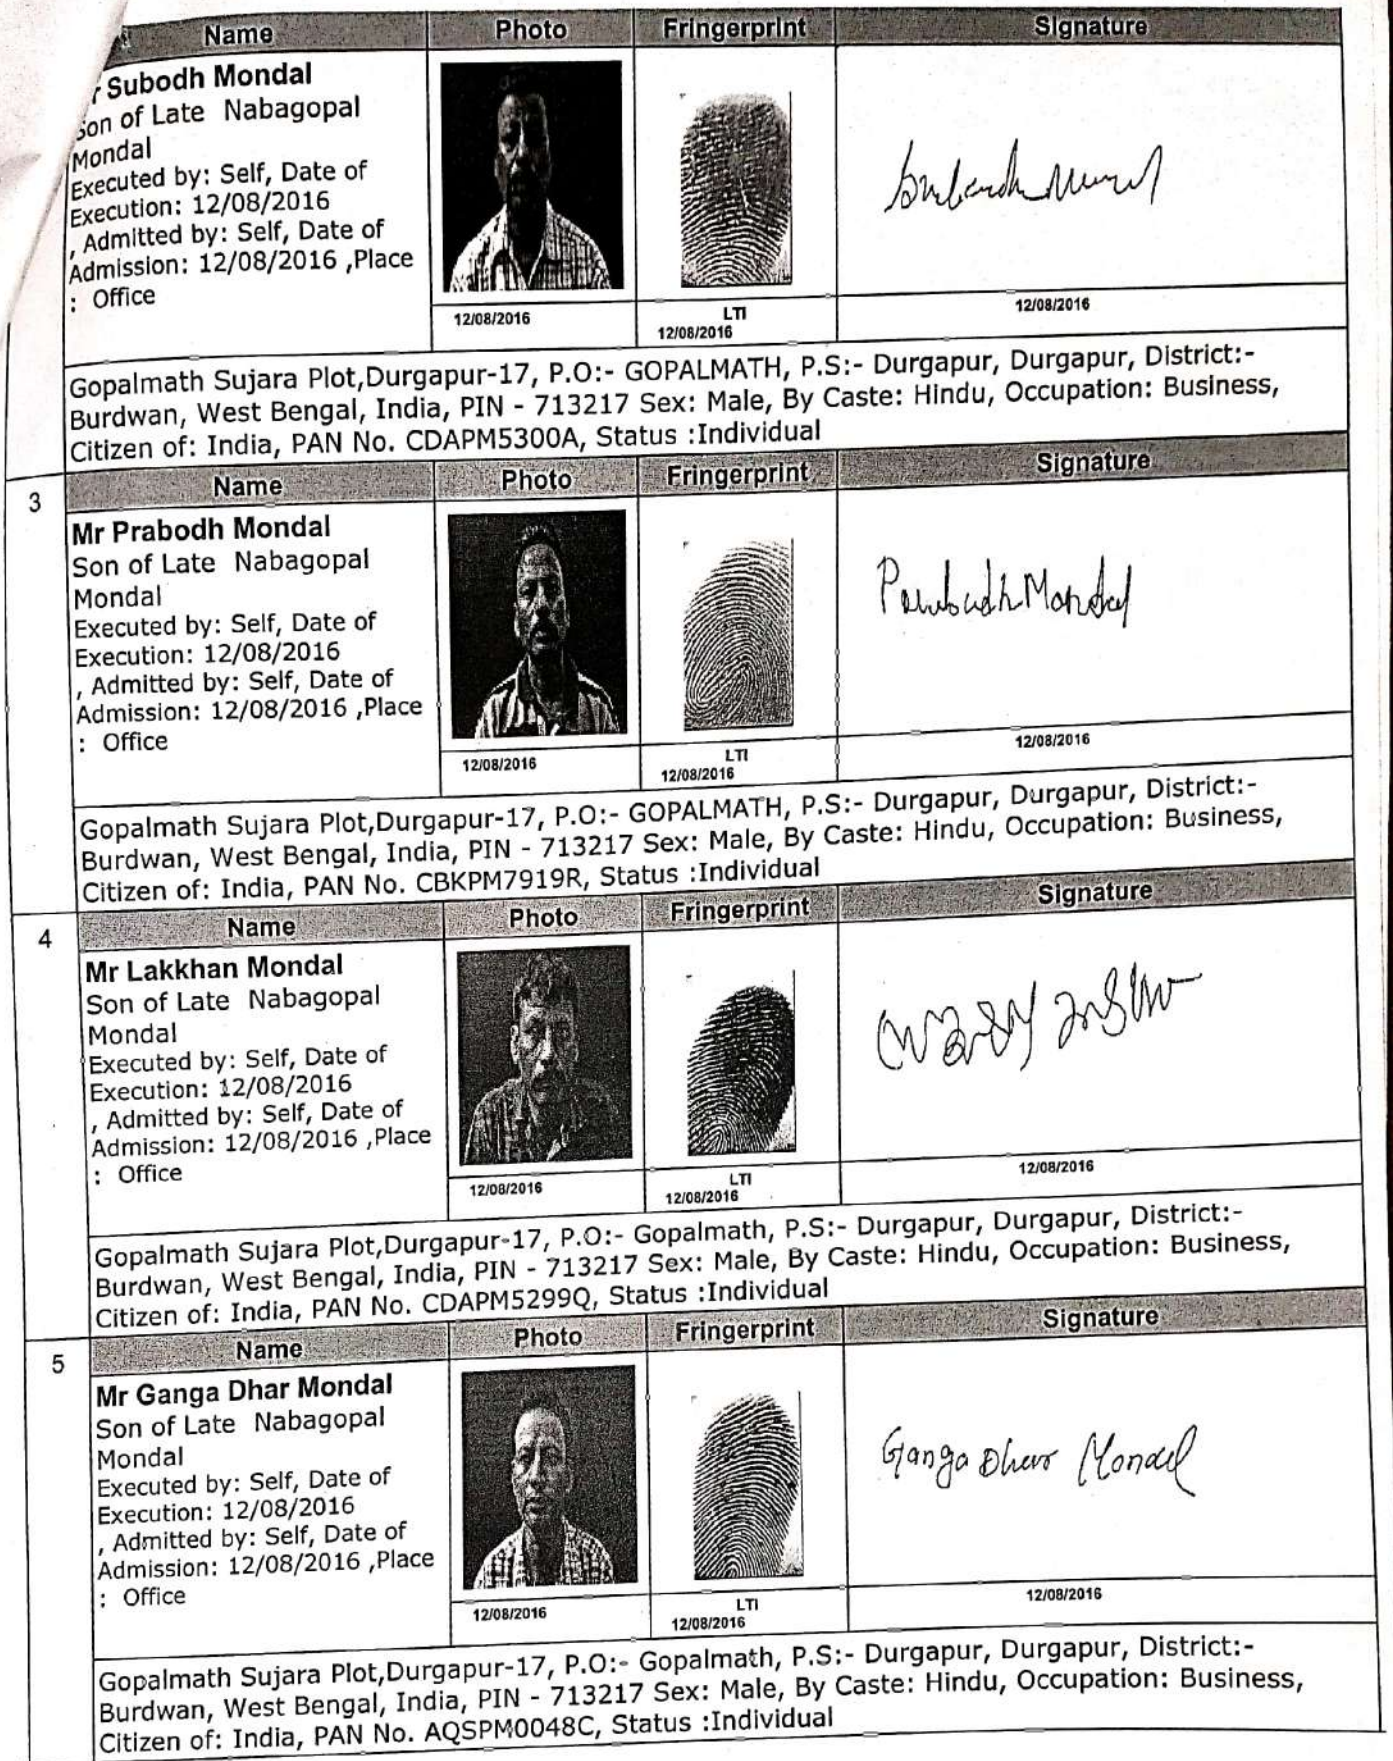 Name Photo Fringerprint Signature
r Subodh Mondal
Son of Late Nabagopal
Mondal
Executed by: Self, Date of
Execution: 12/08/2016
, Admitted by: Self, Date of
Admission: 12/08/2016 ,Place
: Office
12/08/2016
LTI
12/08/2016
12/08/2016
Gopalmath Sujara Plot,Durgapur-17, P.O:- GOPALMATH, P.S:- Durgapur, Durgapur, District:-
Burdwan, West Bengal, India, PIN - 713217 Sex: Male, By Caste: Hindu, Occupation: Business,
Citizen of: India, PAN No. CDAPM5300A, Status :Individual
3
Name Photo Fringerprint Signature
Mr Prabodh Mondal
Son of Late Nabagopal
Mondal
Executed by: Self, Date of
Execution: 12/08/2016
, Admitted by: Self, Date of
Admission: 12/08/2016 ,Place
: Office
Mondal
12/08/2016
LTI
12/08/2016
12/08/2016
Gopalmath Sujara Plot,Durgapur-17, P.O:- GOPALMATH, P.S:- Durgapur, Durgapur, District:-
Burdwan, West Bengal, India, PIN - 713217 Sex: Male, By Caste: Hindu, Occupation: Business,
Citizen of: India, PAN No. CBKPM7919R, Status :Individual
4
Name Photo Fringerprint Signature
Mr Lakkhan Mondal
Son of Late Nabagopal
Mondal
Executed by: Self, Date of
Execution: 12/08/2016
, Admitted by: Self, Date of
Admission: 12/08/2016 ,Place
: Office
12/08/2016
LTI
12/08/2016
12/08/2016
Gopalmath Sujara Plot,Durgapur-17, P.O:- Gopalmath, P.S:- Durgapur, Durgapur, District:-
Burdwan, West Bengal, India, PIN - 713217 Sex: Male, By Caste: Hindu, Occupation: Business,
Citizen of: India, PAN No. CDAPM5299Q, Status :Individual
5
Name Photo Fringerprint Signature
Mr Ganga Dhar Mondal
Son of Late Nabagopal
Mondal
Executed by: Self, Date of
Execution: 12/08/2016
, Admitted by: Self, Date of
Admission: 12/08/2016 ,Place
: Office
Ganga Dhar Mondal
12/08/2016
LTI
12/08/2016
12/08/2016
Gopalmath Sujara Plot,Durgapur-17, P.O:- Gopalmath, P.S:- Durgapur, Durgapur, District:-
Burdwan, West Bengal, India, PIN - 713217 Sex: Male, By Caste: Hindu, Occupation: Business,
Citizen of: India, PAN No. AQSPM0048C, Status :Individual